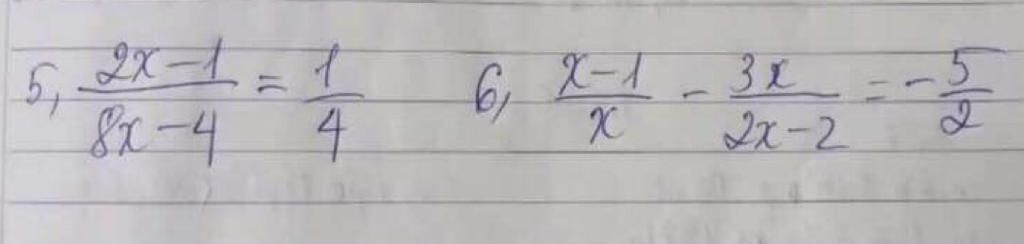 5, \frac{2x-1}{8x-4} = \frac{1}{4}
6, \frac{x-1}{x} - \frac{3x}{2x-2} = -\frac{5}{2}